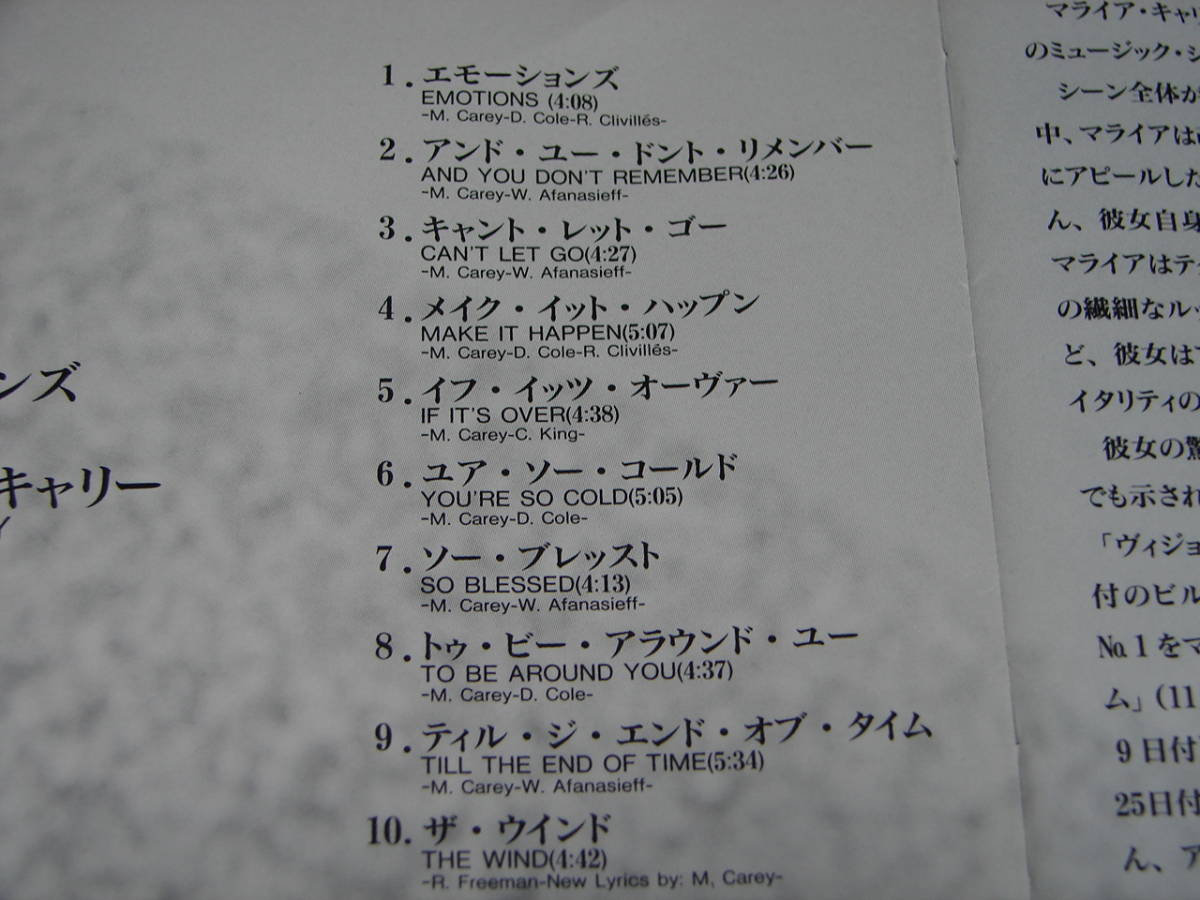 ンズ
キャリー
1. エモーションズ
EMOTIONS (4:08)
-M. Carey-D. Cole-R. Clivillés-
2. アンド・ユー・ドント・リメンバー
AND YOU DON'T REMEMBER(4:26)
-M. Carey-W. Afanasieff-
3. キャント・レット・ゴー
CAN'T LET GO(4:27)
-M. Carey-W. Afanasieff-
4. メイク・イット・ハップン
MAKE IT HAPPEN(5:07)
-M. Carey-D. Cole-R. Clivillés-
5. イフ・イッツ・オーヴァー
IF IT'S OVER(4:38)
-M. Carey-C. King-
6. ユア・ソー・コールド
YOU'RE SO COLD(5:05)
-M. Carey-D. Cole-
7. ソー・ブレッスト
SO BLESSED(4:13)
-M. Carey-W. Afanasieff-
8. トゥ・ビー・アラウンド・ユー
TO BE AROUND YOU(4:37)
-M. Carey-D. Cole-
9. ティル・ジ・エンド・オブ・タイム
TILL THE END OF TIME(5:34)
-M. Carey-W. Afanasieff-
10. ザ・ウインド
THE WIND(4:42)
-R. Freeman-New Lyrics by: M, Carey-
マライア・キャリ
のミュージック・シ
シーン全体が
中、マライアは
にアピールした
ん、彼女自身
マライアはテ
の繊細なル
ど、彼女は
イタリティの
彼女の驚
でも示され
「ヴィジョ
付のビル
No.1をマ
ム」(11
9日付
25日付
ん、ア